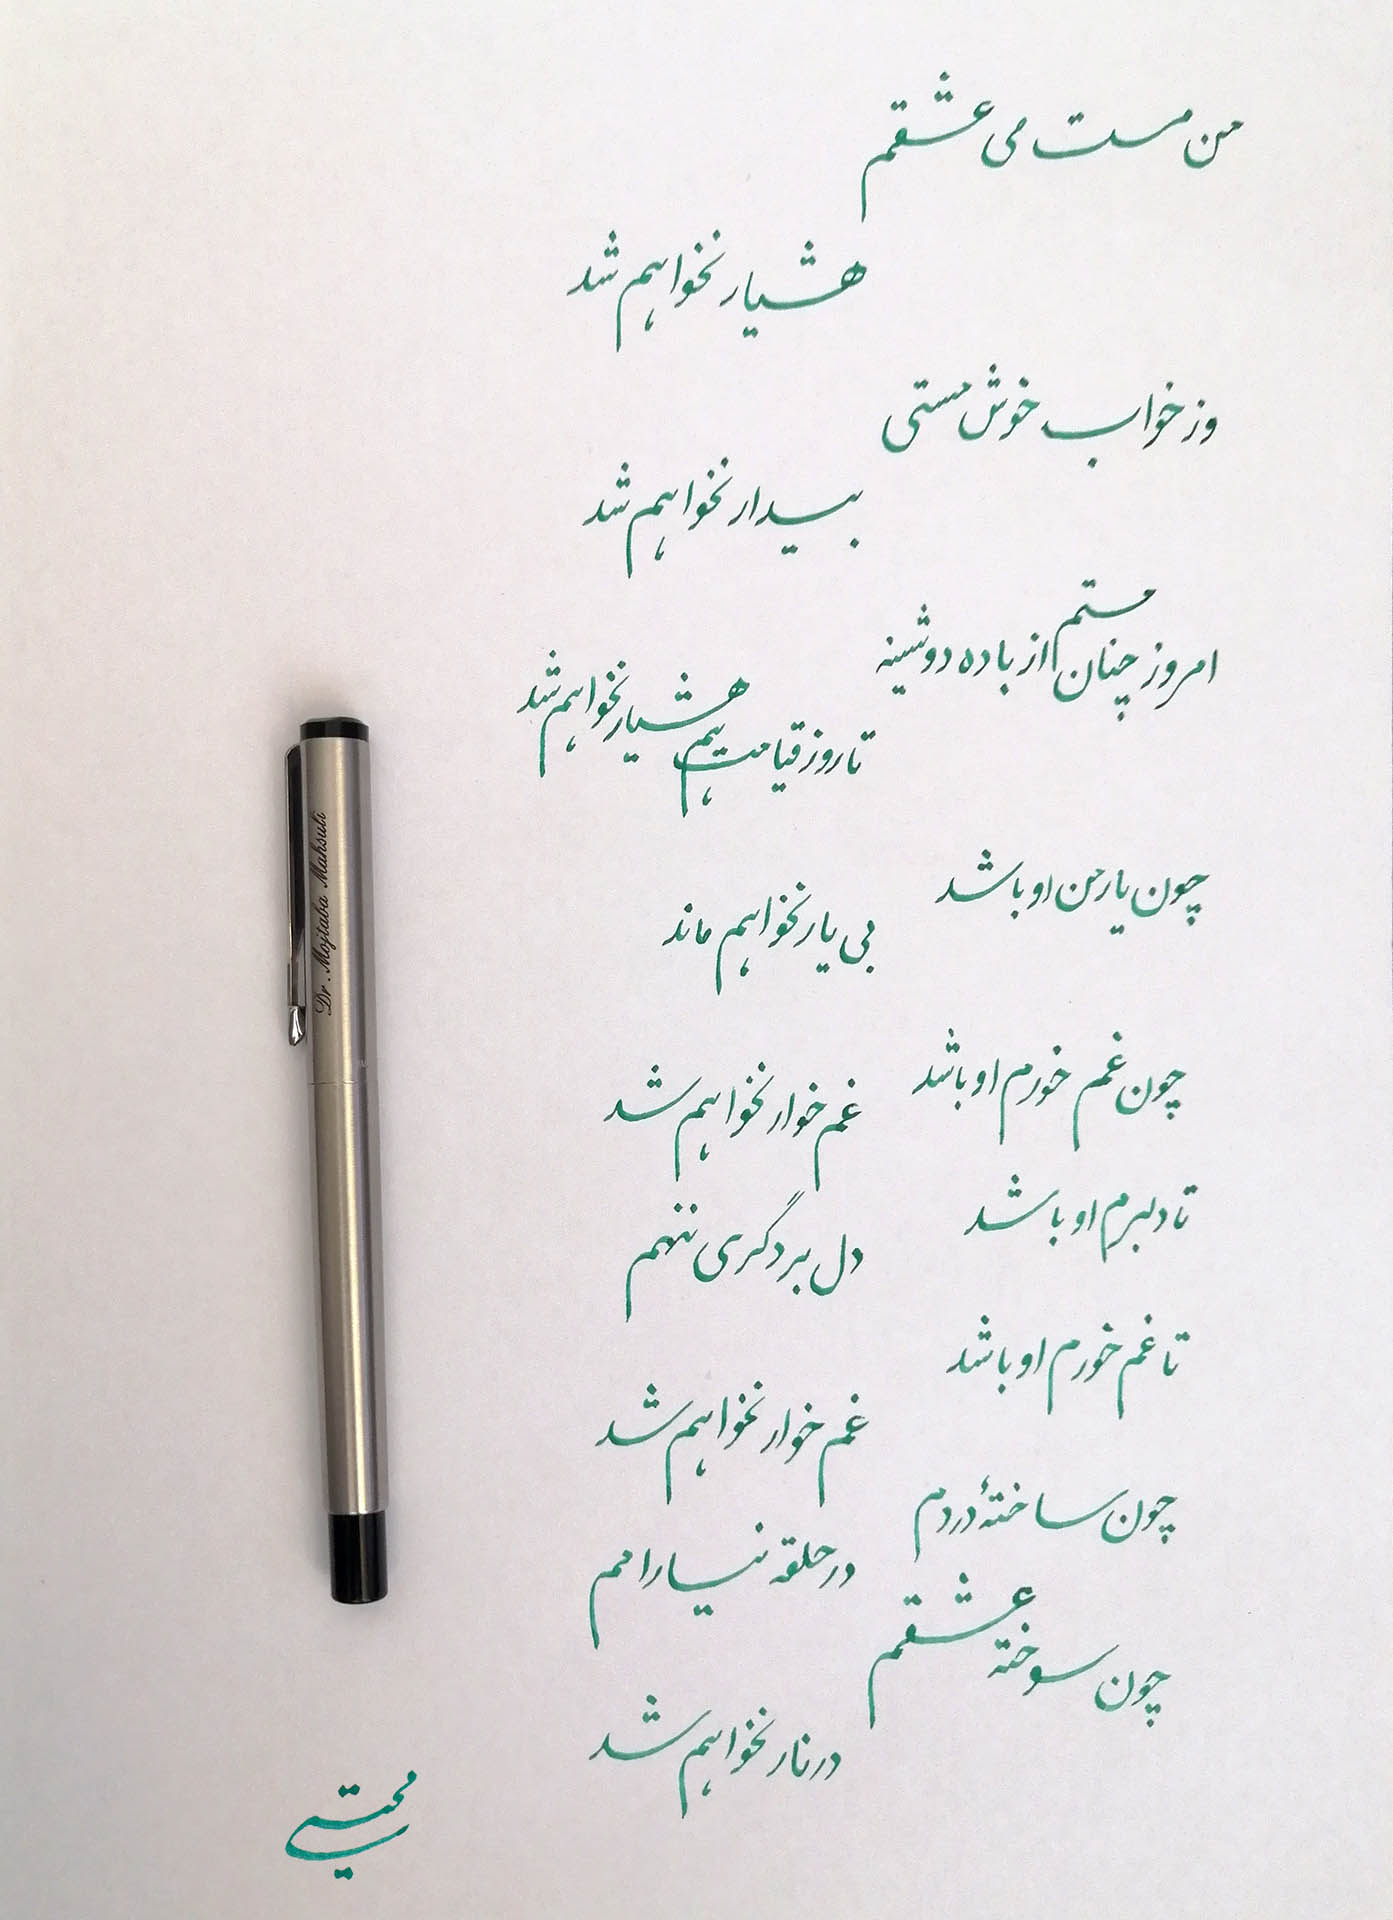 من مست می عشقم
هشیار نخواهم شد
وز خواب خوش مستی
بیدار نخواهم شد
امروز چنان مستم از باده دوشینه
تا روز قیامت هم هشیار نخواهم شد
چون یار من او باشد
بی یار نخواهم ماند
چون غم خورم او باشد
غم خوار نخواهم شد
تا دلبرم او باشد
دل بر دگری ننهم
تا غم خورم او باشد
غم خوار نخواهم شد
چون ساختهٔ دردم
در حلقه نیارامم
چون سوخته عشقم
در نار نخواهم شد
مجتبی
Dr. Mojtaba Mahsuli